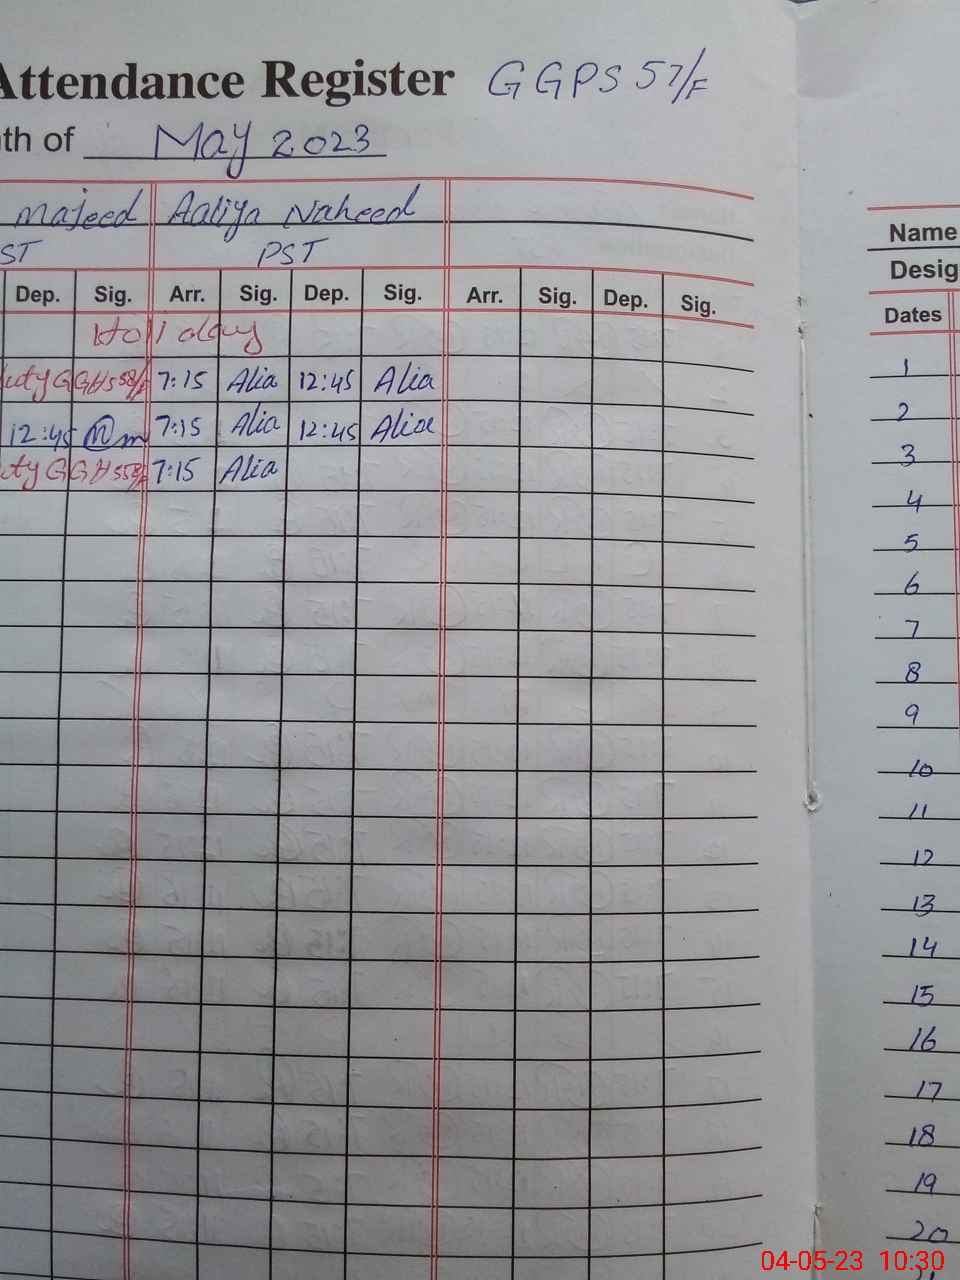 Attendance Register GGPS 57/F
th of May 2023
Majeed Aaliya Naheed
ST PST
Dep. Sig. Arr. Sig. Dep. Sig. Arr. Sig. Dep. Sig.
Holiday
uty GGHS 58/F 7:15 Alia 12:45 Alia
12:45 7:15 Alia 12:45 Alia
uty GGHS 58/F 7:15 Alia
Name
Desig
Dates
1
2
3
4
5
6
7
8
9
10
11
12
13
14
15
16
17
18
19
20
04-05-23 10:30